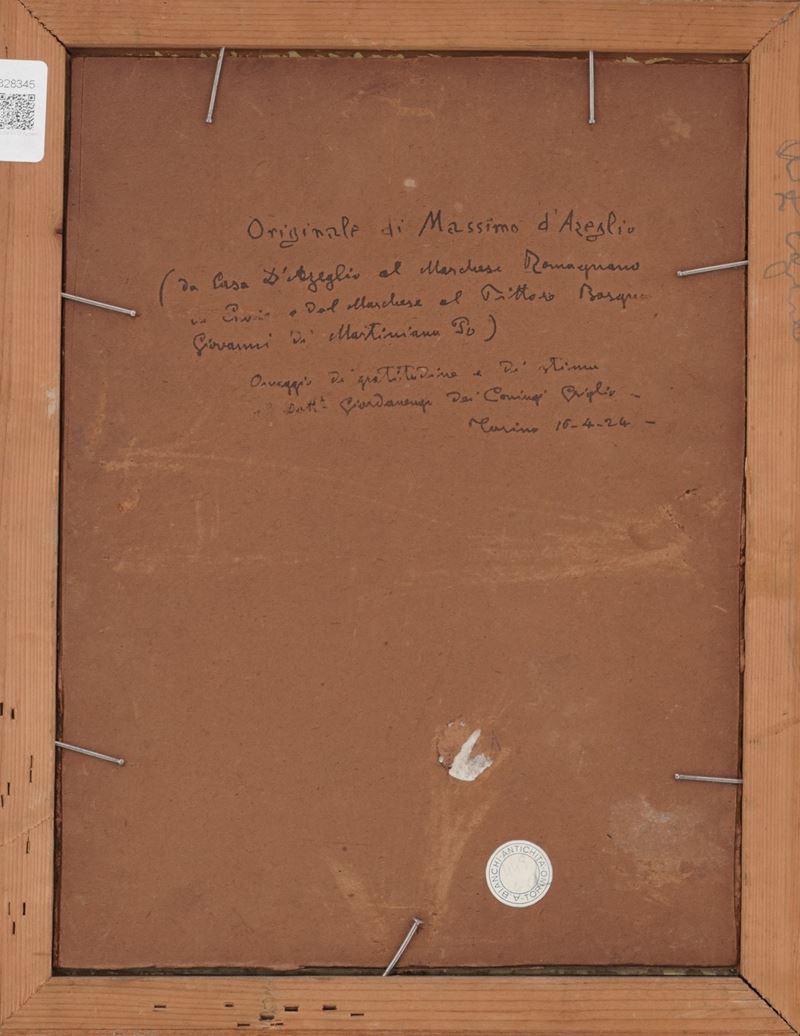 328345
Originale di Massimo d'Azeglio
(da Casa D'Azeglio al Marchese Romagnano
e dal Marchese al Pittore
Giovanni di Martiniana Po)
Omaggio di gratitudine e di stima
al Dott. Giordanengo dei Coniugi
Torino 16-4-24 -
A. BIANCHI · ANTICHITÀ · TORINO